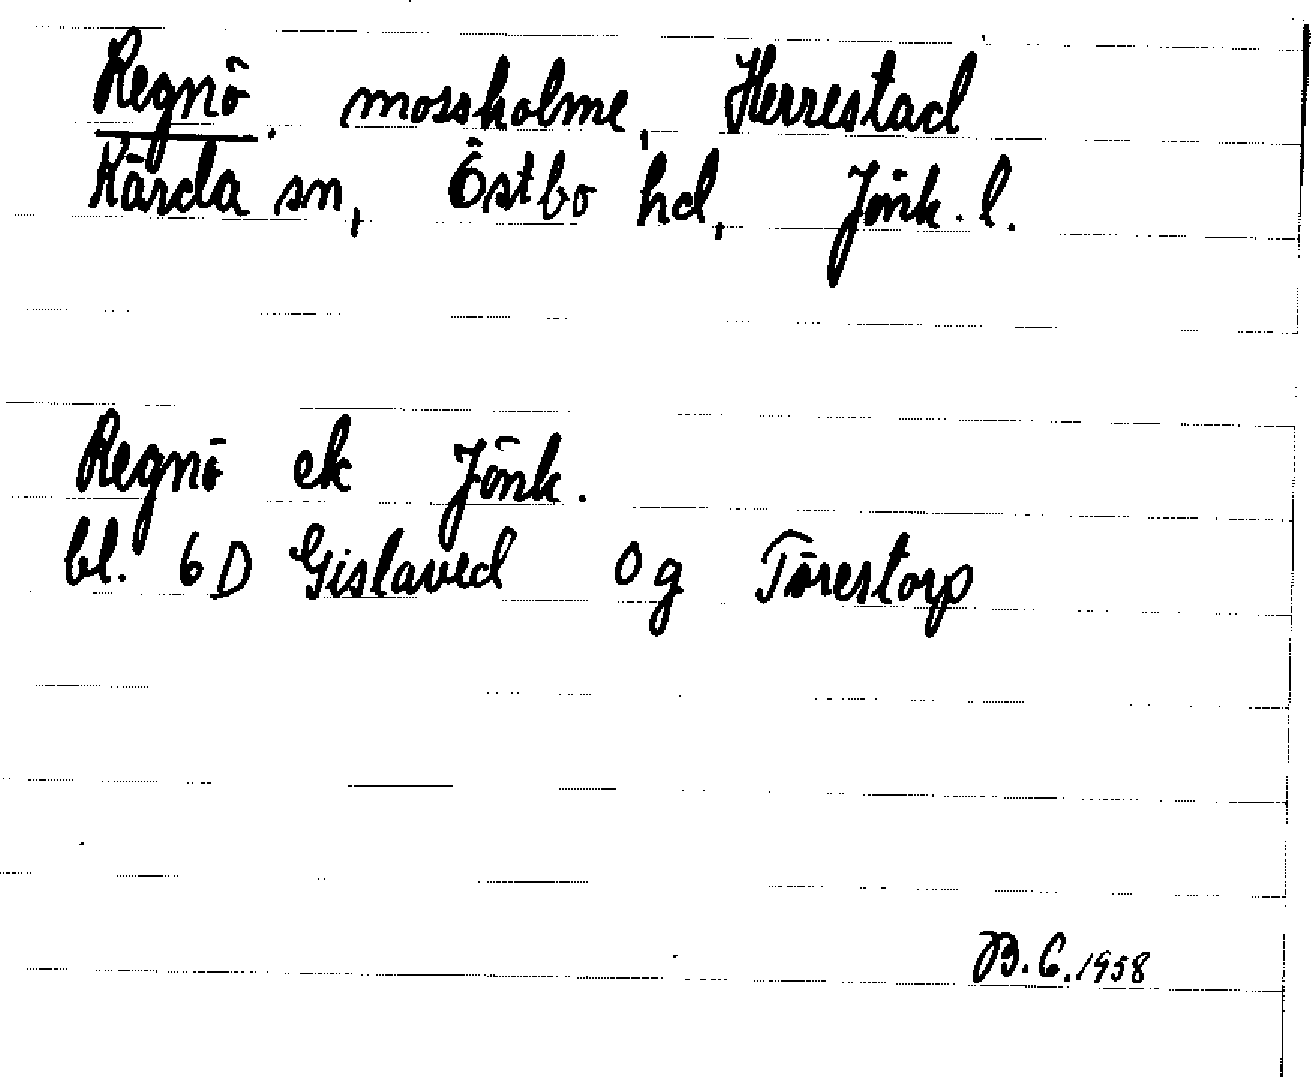 Regnö. mossholme, Herrestad
Kärda sn, Östbo hd, Jönk. l.
Regnö ek Jönk.
bl. 6 D Gislaved 0 g Törestorp
B.C. 1958